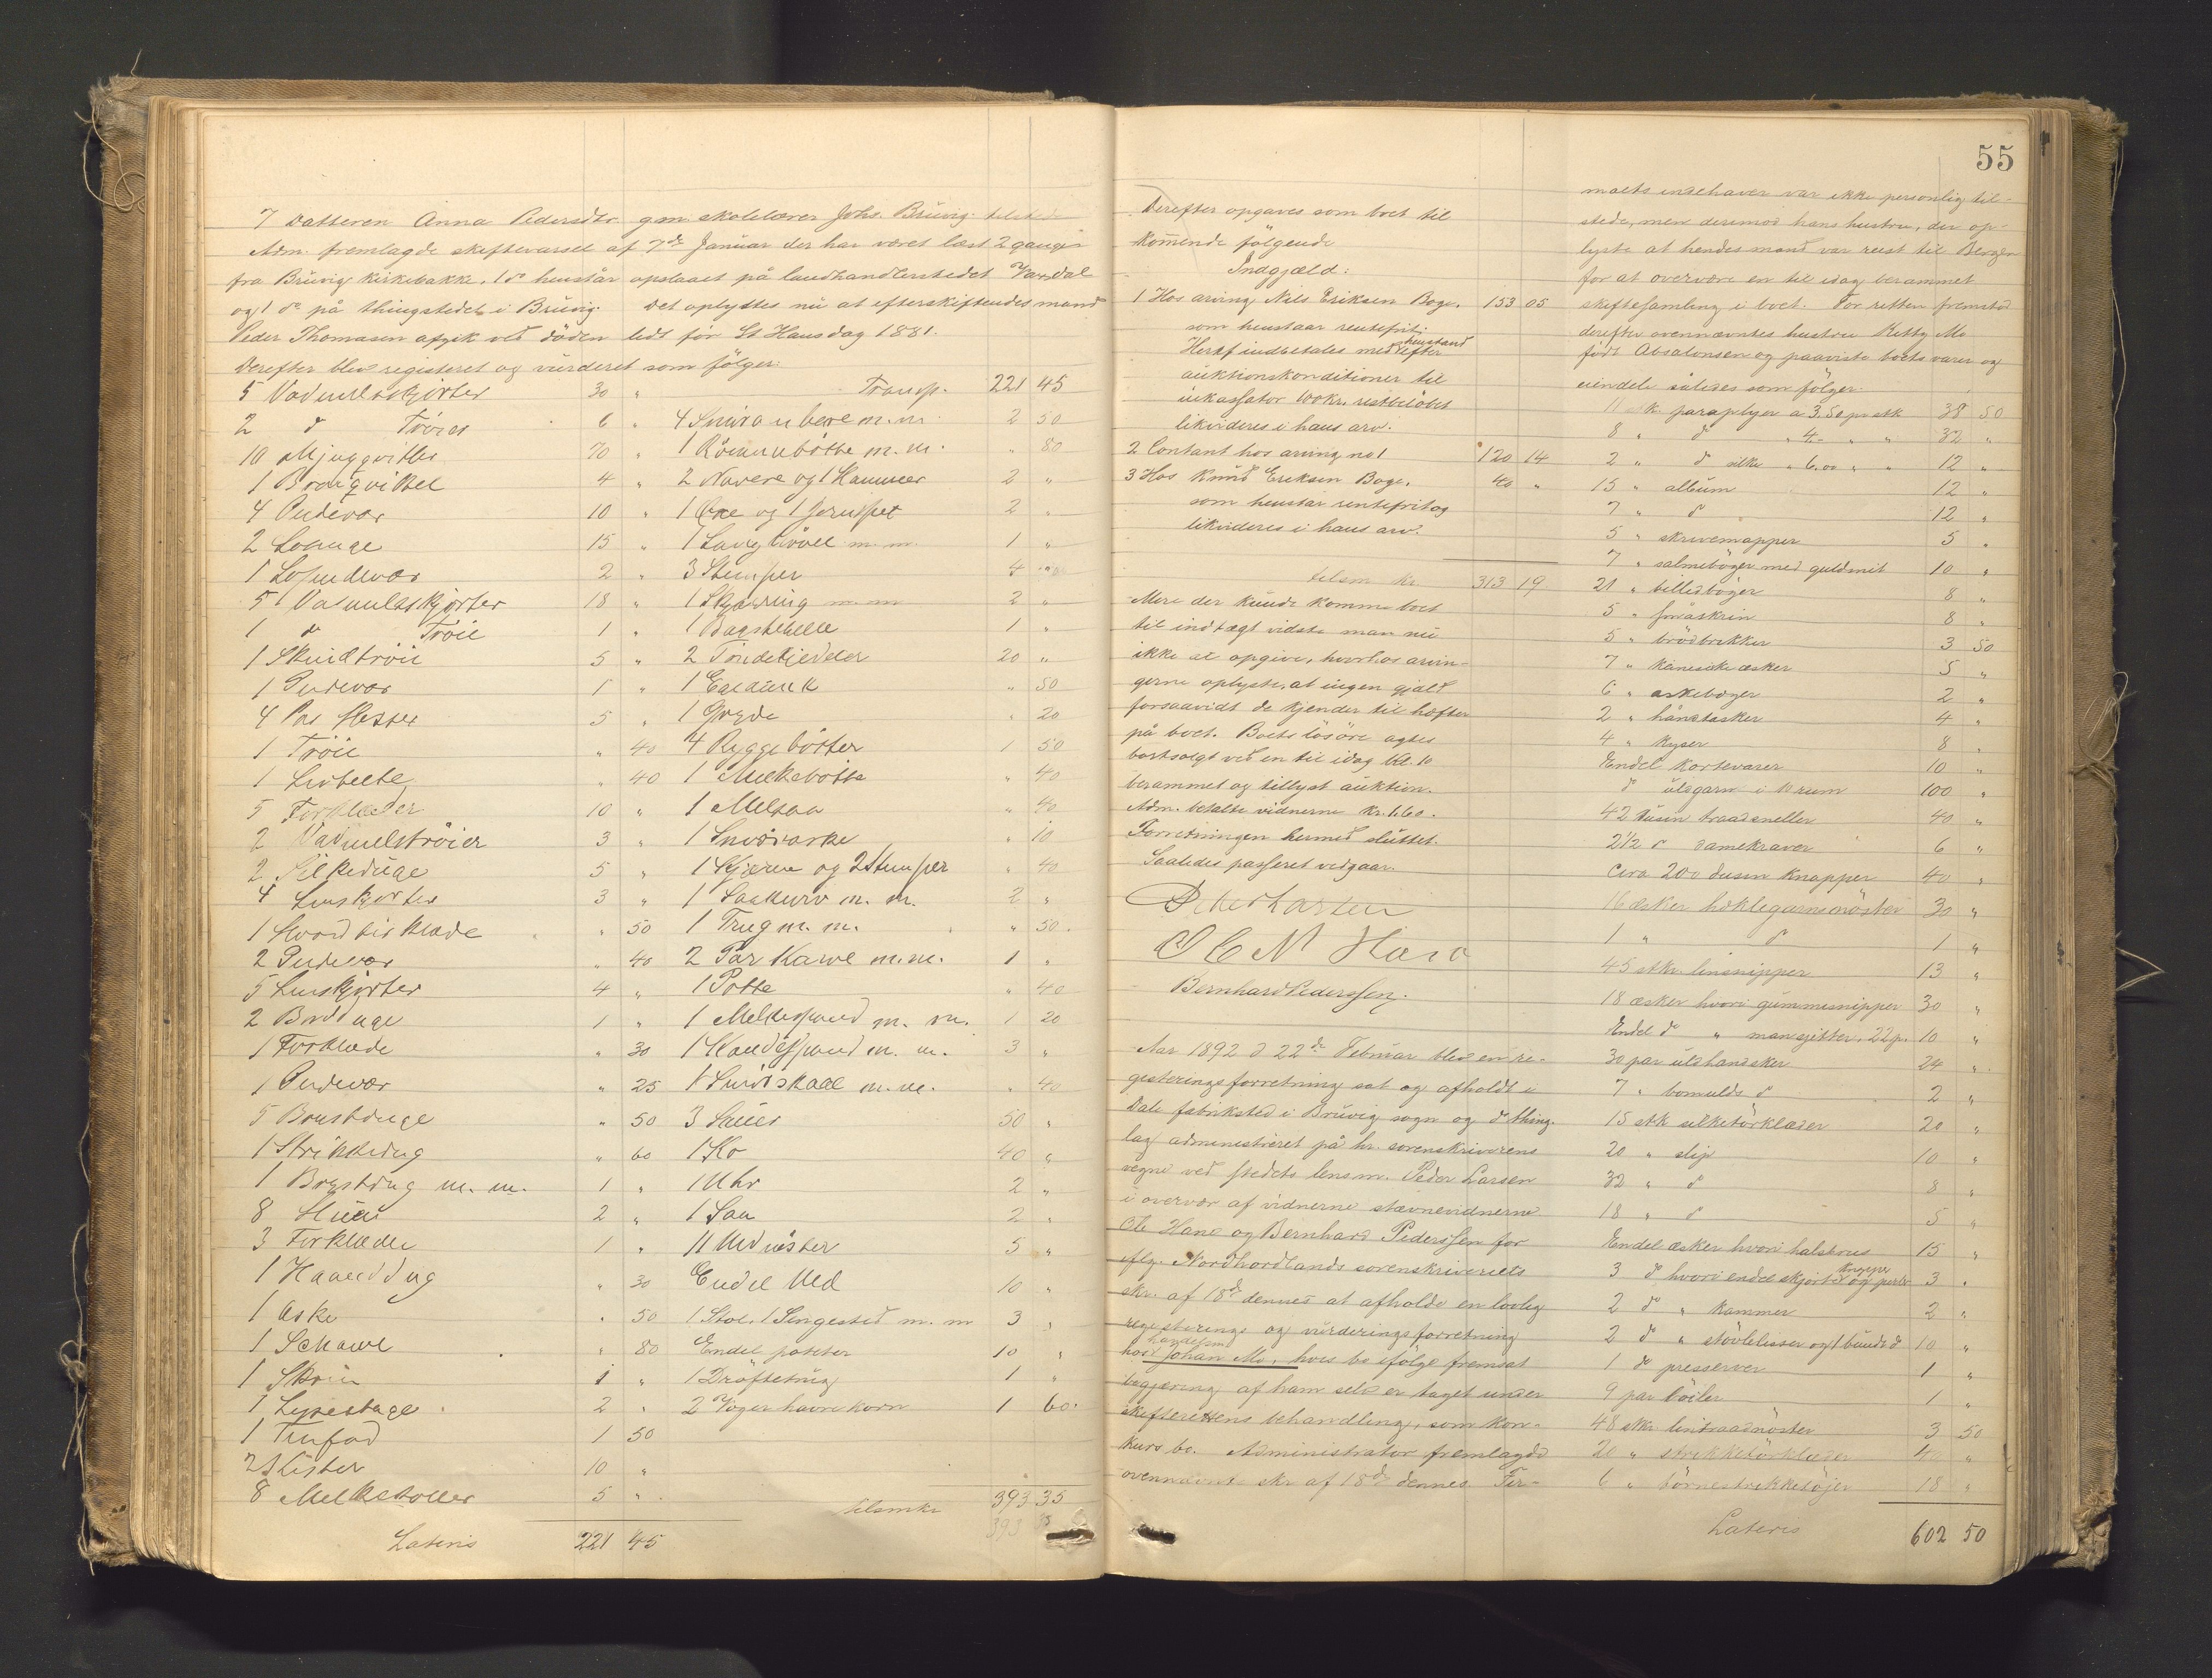 7 Datteren Anna Pedersdtr. gm. skolelærer Johs. Brüvig. tilstede
Adm. fremlagde skiftevarsel af 7de Januar der har været læst 2 gange
fra Brüvig kirkebakke, 1 do henstår opslaaet på landhandlerstedet Vaxdal
og 1 do på thingstedet i Brüvig. Det oplystes nu at efterskiftendes mand
Peder Thomasen afgik ved döden ledt för St Hansdag 1881.
Derefter blev registeret og vurderet som fölger:
5 Vadmelsskjörter 30 "
2 do Tröier 6 "
10 70 "
1 4 "
4 Pudevar 10 "
2 15 "
1 2 "
5 Vadmelsskjörter 18 "
1 do Tröie 1 "
1 Skindtröie 5 "
1 Pudevar 1 "
4 Par 5 "
1 Tröie " 40
1 " 40
5 Forklæder 10 "
2 Vadmelströier 3 "
2 Silkeduge 5 "
4 Linskjorter 3 "
1 " 50
2 Pudevar " 40
5 Linskjorter 4 "
2 Bordduge 1 "
1 Forklæde " 30
1 Pudevar " 25
5 Brystduge " 50
1 " 60
1 Brystdug m. m. 1 "
8 Huer 2 "
3 Forklæder 1 "
1 Haanddug " 30
1 Æske " 50
1 " 80
1 Skrin 1 "
1 Lysestage 2 "
1 Tinfad 1 50
2 Kister 10 "
8 Melkekoller 5 "
Lateris 221 45
Transp. 221 45
4 m. m. 2 50
1 m. m. " 80
2 Navere og 1 Hammer 2 "
1 Öxe og 1 2 "
1 m. m. 1 "
3 Stemper 4 "
1 m. m. 2 "
1 Bagstehelle 1 "
2 20 "
1 " 50
1 Gryde " 20
4 1 50
1 Melkebötte " 40
1 " 40
1 " 10
1 Kjerne og 2 Stamper " 40
1 m. m. 2 "
1 Trug m. m. " 50
2 Par Karve m. m. 1 "
1 Potte " 40
1 Melkespand m. m. 1 20
1 m. m. 3 "
1 m. m. " 40
3 Sauer 50 "
1 Ko 40 "
1 Uhr 2 "
1 Sau 2 "
11 5 "
Endel Ved 10 "
1 Stol, 1 Sengested m. m 3 "
Endel poteter 10 "
1 Dröftetrug 1 "
2 Voger havrekorn 1 60.
tilsmkr 393 35
393 35
55
Derefter opgaves som boet til
kommende fölgende
Indgjæld:
1 Hos arving Nils Eriksen Boge. 153 05
som henstaar rentefrit.
Heraf indbetales med henstand efter
auktionskonditioner til
inkassator 100 kr. restbelöbet
likvideres i hans arv.
2 Contant hos arving no 1 120 14
3 Hos Knud Eriksen Boge. 40 "
som henstår rentefrit og
likvideres i hans arv.
tilsm kr. 313 19
Mere der kunde komme boet
til indtægt vidste man nu
ikke at opgive, hvorhos arvin-
gerne oplyste, at ingen gjæld
forsaavidt de kjender til hæfter
på boet. Boets lösöre agtes
bortsolgt ved en til idag kl. 10
berammet og tillyst auktion.
Adm. betalte vidnerne kr. 1.60.
Forretningen hermed sluttet.
Saaledes passeret vedgaar.
Peder Larsen
O C N Hane
Bernhard Pederssen.
Aar 1892 d 22de Februar blev en re-
gisteringsforretning sat og afholdt i
Dale fabriksted i Brüvig sogn og do thing-
lag administreret på hr. sorenskriverens
vegne ved stedets lensm. Peder Larsen
i overvær af vidnerne stævnevidnerne
Ole Hane og Bernhard Pederssen for
iflg. Nordhordlands sorenskriveriets
skr. af 18de dennes at afholde en lovlig
registerings og vurderingsforretning
hos handelsm Johan Mo, hvis bo ifölge fremsat
begjæring af ham selv er taget under
skifterettens behandling, som kon-
kurs bo. Administrator fremlagde
ovennævnte skr. af 18de dennes. Fir-
maets indehaver var ikke personlig til-
stede, men derimod hans hustru, der op-
lyste at hendes mand var reist til Bergen
for at overvære en til idag berammet
skiftesamling i boet. For retten fremstod
derefter ovennævntes hustru Ketty Mo
födt Absalonsen og paaviste boets varer og
eiendele således som fölger.
11 stk. paraplyer a 3.50 pr stk 38 50
8 " do " 4 - " " 32 "
2 " do silke " 6.00 " " 12 "
15 " album 12 "
7 " do 12 "
5 " skrivemapper 5 "
7 " salmebøger med guldsnit 10 "
21 " billedböger 8 "
5 " småskrin 8 "
5 " brödbrikker 3 50
7 " æsker 5 "
6 " askebæger 2 "
2 " håndtasker 4 "
4 " Kyser 8 "
Endel kortevarer 10 "
do uldgarn i 10 rum 100 "
42 dusin traadsneller 40 "
2 1/2 do damekraver 6 "
Cira 200 dusin knapper 40 "
16 æsker heklegarnsnöster 30 "
1 " do 1 "
45 stkr. linsnipper 13 "
18 æsker hvori gummisnipper 30 "
Endel do " mansjetter. 22 p. 10 "
30 par uldhandsker 24 "
7 " bomulds do 2 "
15 stk silketörklæder 20 "
20 " slips 10 "
32 " do 8 "
18 " do 5 "
Endel æsker hvori halskrus 15 "
3 do hvori endel skjorteknapper og perler 3 "
2 do " kammer 2 "
2 do " stövlelisser og 1 bundt do 10 "
1 do presserver 1 "
9 par böiler 1 "
48 stkr. lintraadnöster 3 50
20 " strikketörklæder 40 "
6 " börnestrikketöjer 18 "
Lateris 602 50